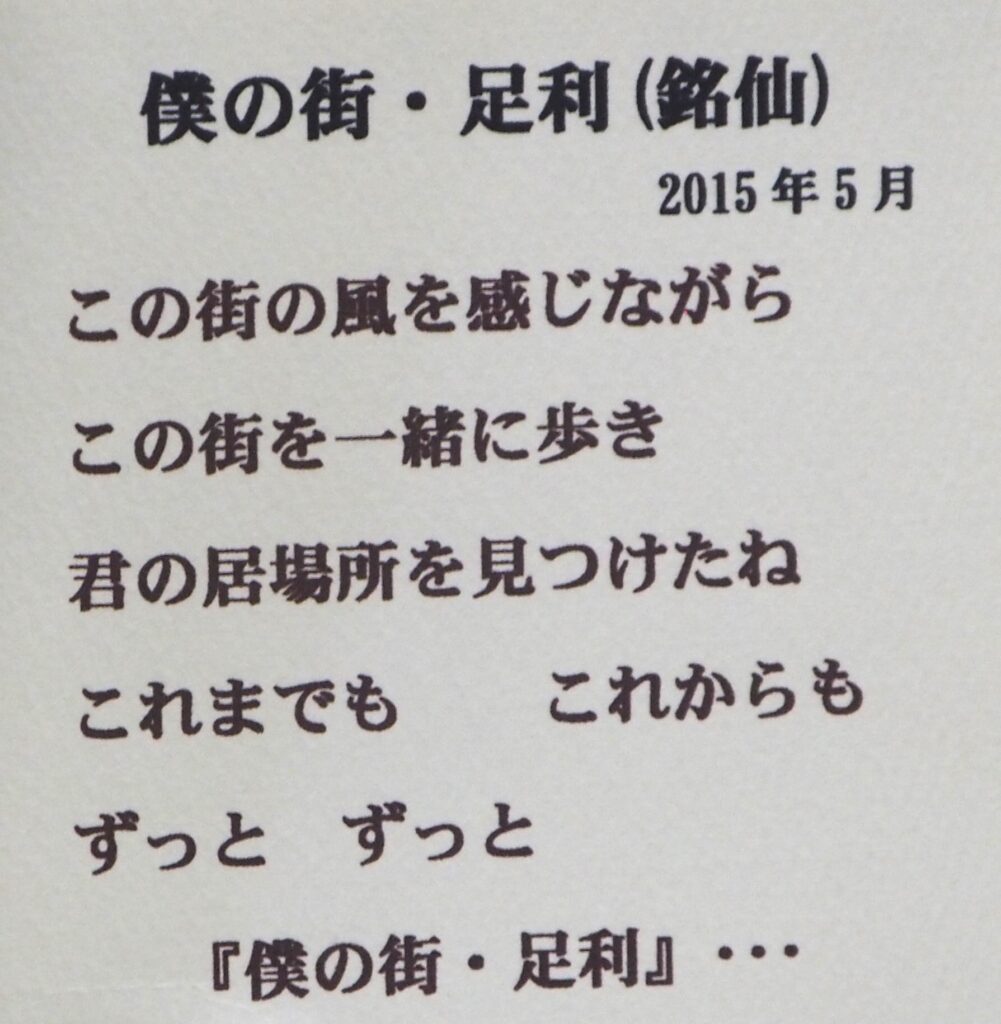 僕の街・足利(銘仙)
2015年5月
この街の風を感じながら
この街を一緒に歩き
君の居場所を見つけたね
これまでも　　これからも
ずっと　ずっと
『僕の街・足利』・・・